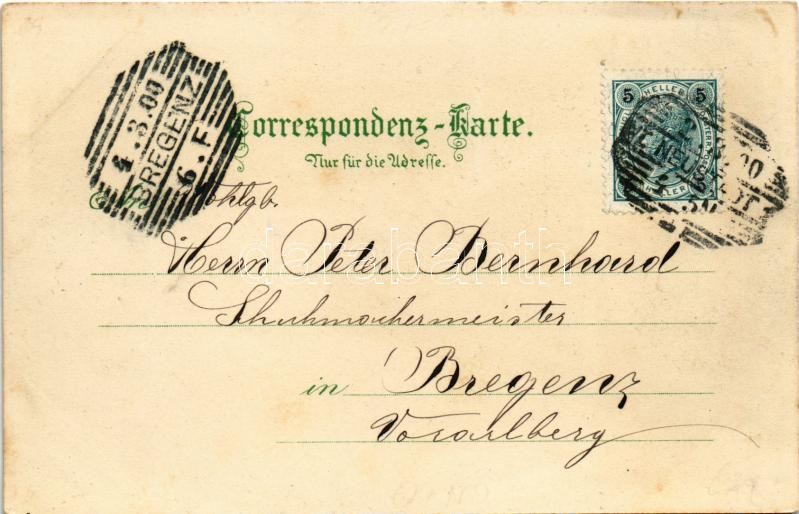 4.3.00
BREGENZ
6.F
Correspondenz-Karte.
Nur für die Adresse.
5 HELLER 5
NEU
STADT
00
Wohlgb.
Herrn Peter Bernhard
Schuhmachermeister
in Bregenz
Vorarlberg
darabanth